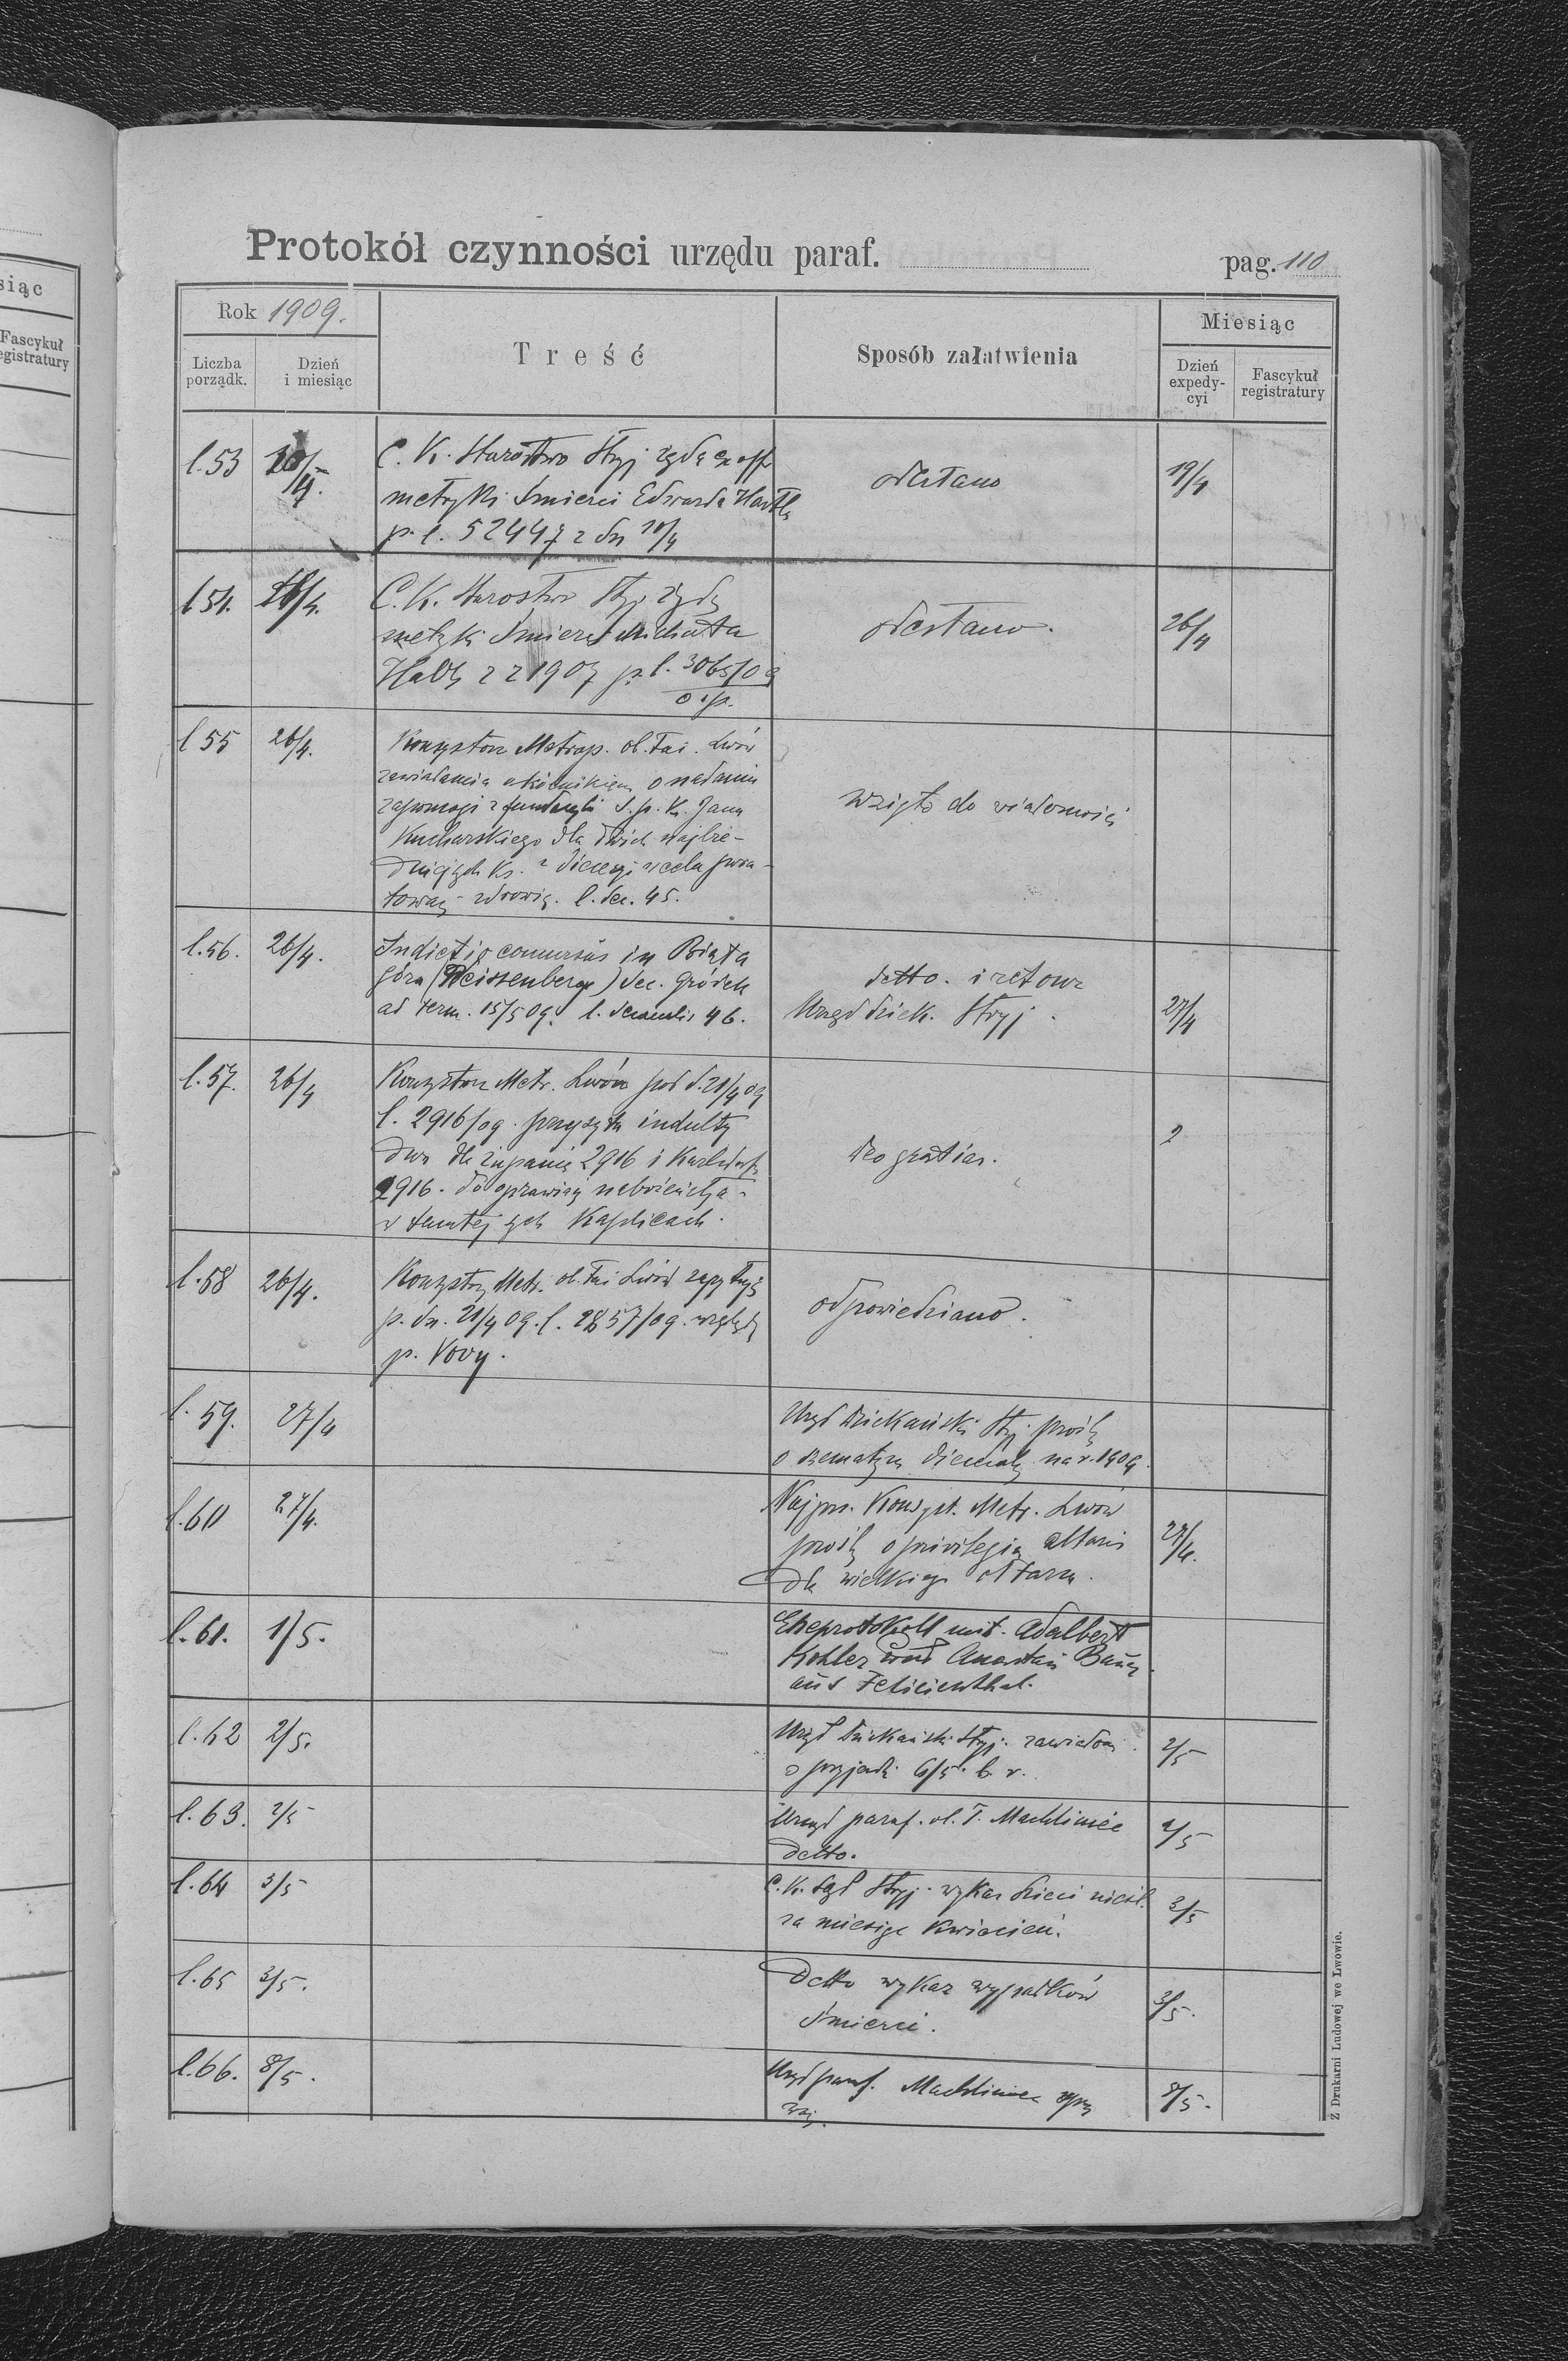 Protokół czynności urzędu paraf.
pag. 110
Rok 1909.
Liczba porządk.
Dzień i miesiąc
Treść
Sposób załatwienia
Miesiąc
Dzień expedycyi
Fascykuł registratury
siąc
Fascykuł
egistratury
l.53
C. K. Starostwo Stryj żąda ex offo
metryki śmierci Edwarda
p. l. 52447 z dn
odesłano
19/4
l 54.
26/4.
C. K. Starostwo Stryj żąda
metryki śmierci Michała
z r 1907 p. l. 3065/09
odesłano.
26/4
l 55
26/4.
Konsystorz Metrop. ob. łac. Lwów
zawiadamia okólnikiem o nadaniu
zapomogi z fundacyi ś. p. Ks. Jana
Kucharskiego dla dwóch najbie-
dniejszych Ks. z diecezyi w celu pora-
towania zdrowia. l. dec. 45.
wzięto do wiadomości
l.56.
26/4.
Indictio concursus in Biała
góra (Weissenberg) dec. Gródek
ad term. 15/5 09. l. decanalis 46.
detto. i retour
Urząd dziek. Stryj.
27/4
l.57.
26/4
Konsystorz Metr. Lwów pod d. 21/4 09
l. 2916/09. przysyła indulty
dwa dla 2916 i Karlsdorf
2916. do oprawiania nabożeństwa
w tamtejszych Kaplicach.
deo gratias.
2
l.58
26/4.
Konsystorz Metr. ob. łac Lwów zapytuje
p. dn. 21/4 09. l. 2857/09.
p.
odpowiedziano.
l. 59.
27/4
Urząd dziekański Stryj prośba
o szematyzm diecezalny na r. 1909.
l.60
27/4.
Najprz. Konsyst. Metr. Lwów
prośba o privilegia altaris
dla wielkiego ołtarza.
27/4.
l.61.
1/5.
Eheprotokoll mit. Adalbert
Kohler und Anastasia
aus Felicienthal.
l.62
2/5.
Urząd dziekański Stryj. zawiadom.
o przyjeździe 6/5. b. r.
2/5
l.63.
2/5
Urząd paraf. ob. ł. Machliniec
detto.
2/5
l.64
3/5
C. K. Sąd Stryj. wykaz dzieci nieśl.
za miesiąc kwiecień.
3/5
l.65
3/5.
Detto wykaz wypadków
śmierci.
3/5.
l.66.
8/5.
Urząd paraf. Machliniec
8/5.
Z Drukarni Ludowej we Lwowie.